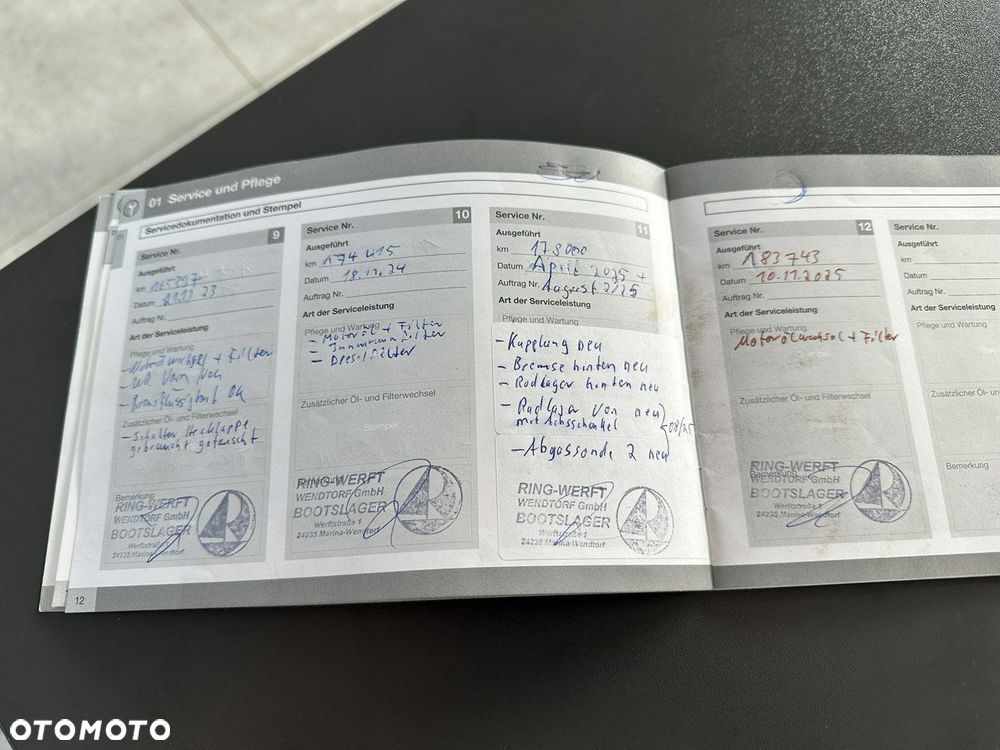 01 Service und Pflege
Servicedokumentation und Stempel
Service Nr. 9
Ausgeführt
km
Datum 21.11.23
Auftrag Nr.
Art der Serviceleistung
Pflege und Wartung
+ Filter
Zusätzlicher Öl- und Filterwechsel
- Schalter Heckklappe
gebraucht getauscht
Bemerkung
RING-WERFT
WENDTORF GmbH
BOOTSLAGER
Werftstraße 1
24235 Marina-Wendtorf
12
Service Nr. 10
Ausgeführt
km 174 415
Datum 18.11.24
Auftrag Nr.
Art der Serviceleistung
Pflege und Wartung
- Motoröl + Filter
- Innenraum Filter
- Diesel Filter
Zusätzlicher Öl- und Filterwechsel
Stempel
RING-WERFT
WENDTORF GmbH
BOOTSLAGER
Werftstraße 1
24235 Marina-Wendtorf
Service Nr. 11
Ausgeführt
km 178000
Datum April 2025 +
Auftrag Nr. August 2025
Art der Serviceleistung
- Kupplung neu
- Bremse hinten neu
- Radlager hinten neu
- Radlager von neu
mit Achsschenkel
08/25
- Abgassonde 2 neu
RING-WERFT
WENDTORF GmbH
BOOTSLAGER
Werftstraße 1
24235 Marina-Wendtorf
Service Nr. 12
Ausgeführt
km 183743
Datum 10.11.2025
Auftrag Nr.
Art der Serviceleistung
Pflege und Wartung
Motorölwechsel + Filter
Zusätzlicher Öl- und Filterwechsel
Stempel
Bemerkung
RING-WERFT
WENDTORF GmbH
BOOTSLAGER
Werftstraße 1
24235 Marina-Wendtorf
Service Nr.
Ausgeführt
km
Datum
Auftrag Nr.
Art der Serviceleistung
Pflege und Wartung
Zusätzlicher Öl-
Bemerkung
OTOMOTO